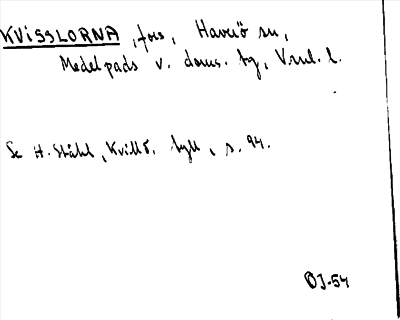 KVISSLORNA, fors, Havnö sn,
Medelpads v. doms. tg, Vnl. l.
Se H. Ståhl, Kvillö. tyll, s. 94.
OJ-54